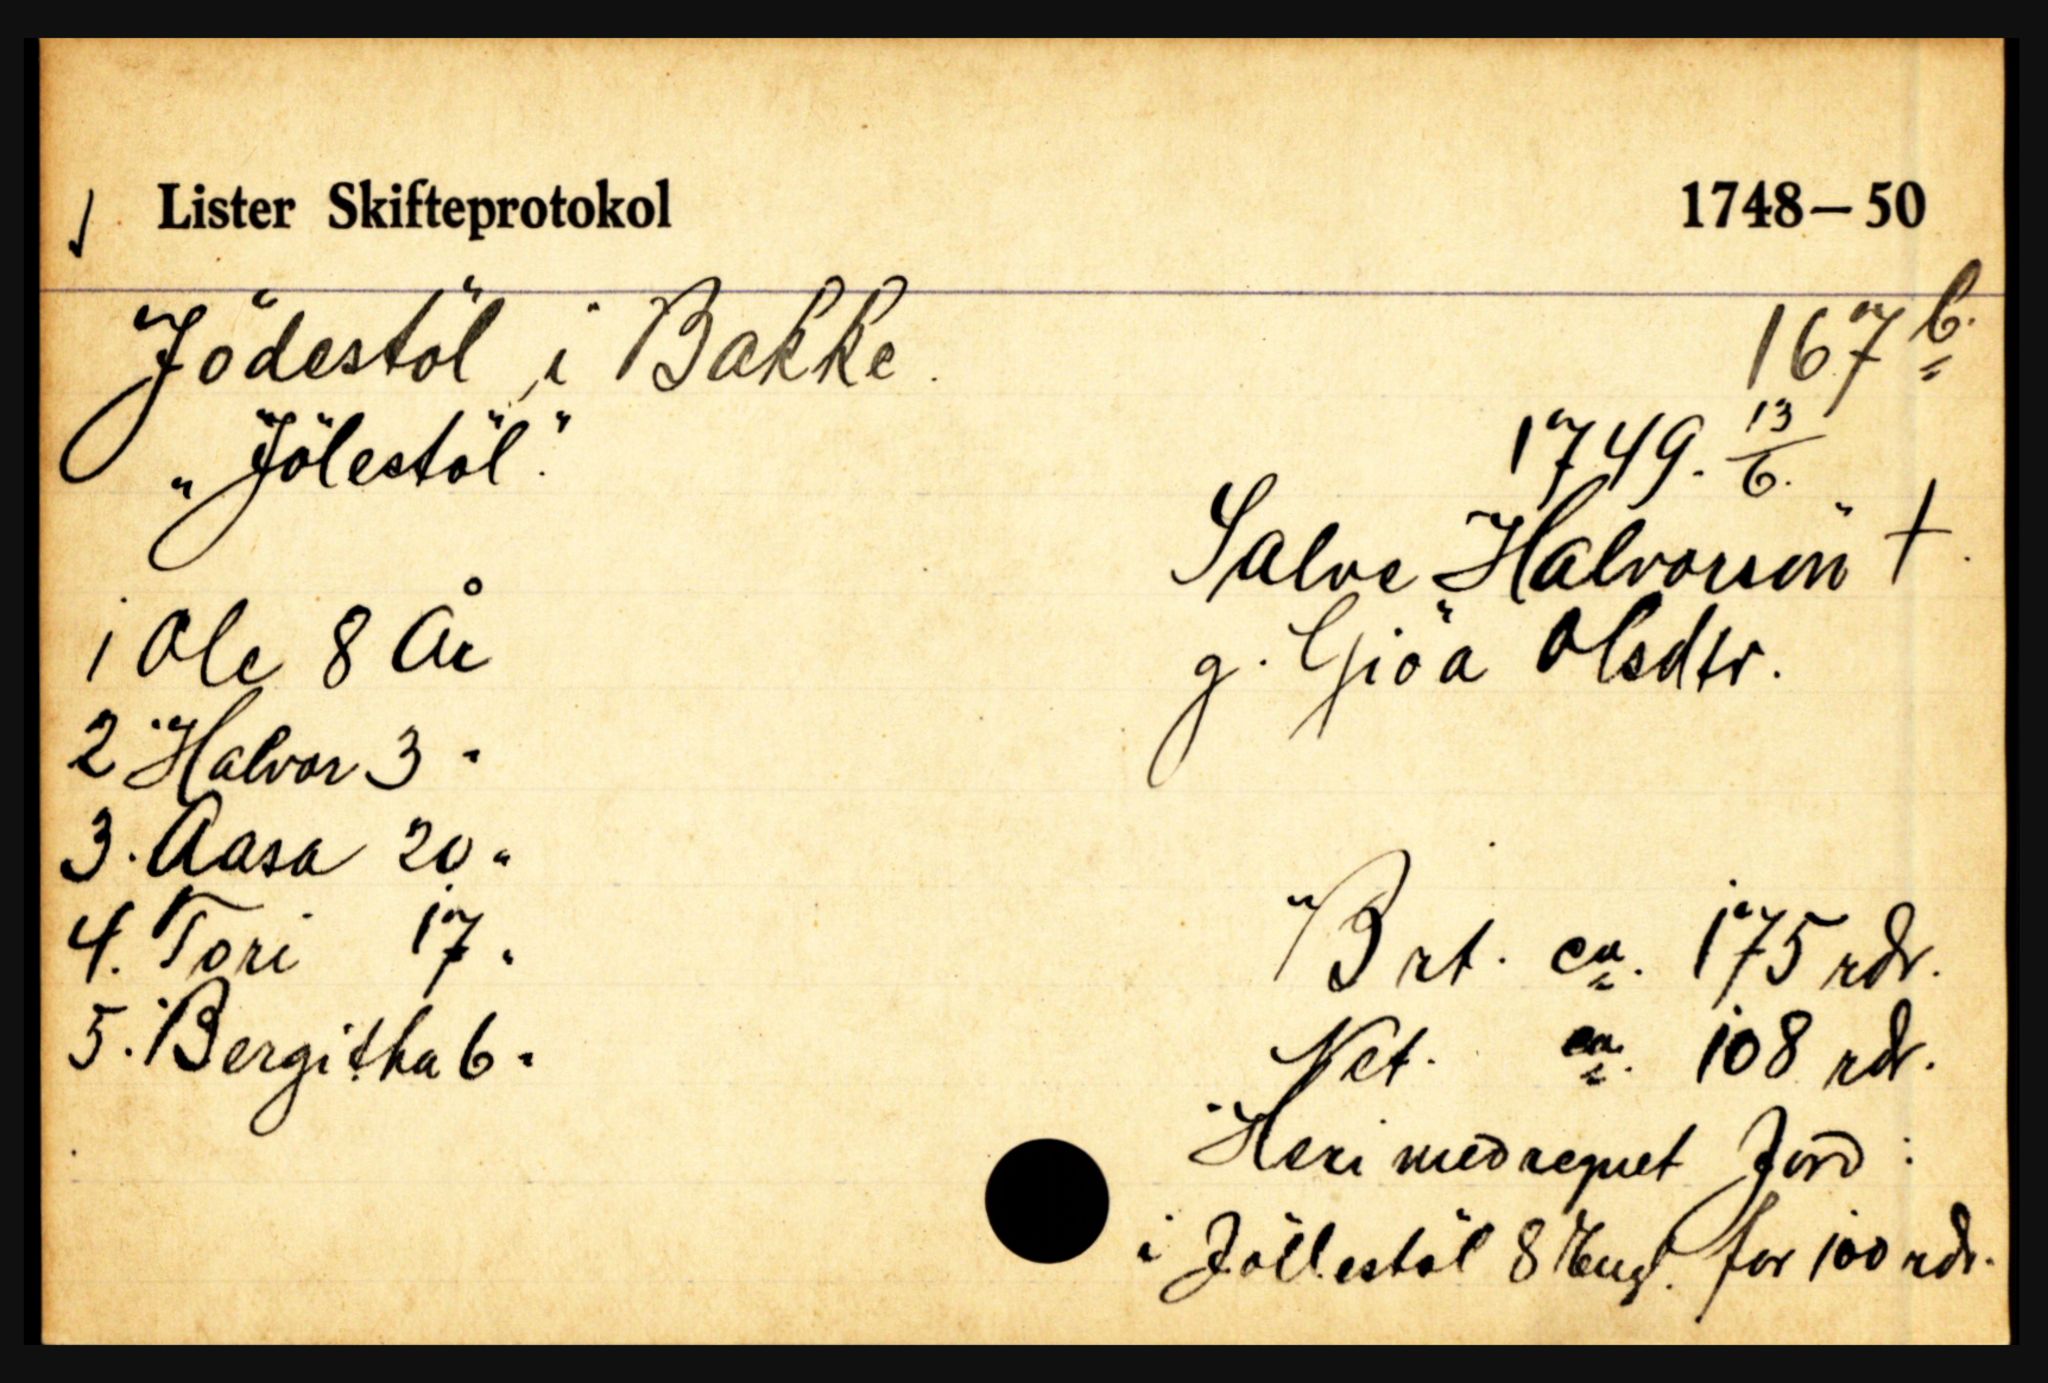 Lister Skifteprotokol 1748—50
Jödestöl i Bakke. 167 b.
"Jölestöl." 1749. 13/6.
Salve Halvorsen †.
g. Gjöa Olsdtr.
1 Ole 8 År
2 Halvor 3 "
3. Aasa 20 "
4. Tori 17 "
5. Bergitha 6 "
Brt. ca. 175 rdr.
Net. ca. 108 rdr.
Heri medregnet Jord:
i Jöllestöl 8 Eng. for 100 rdr.